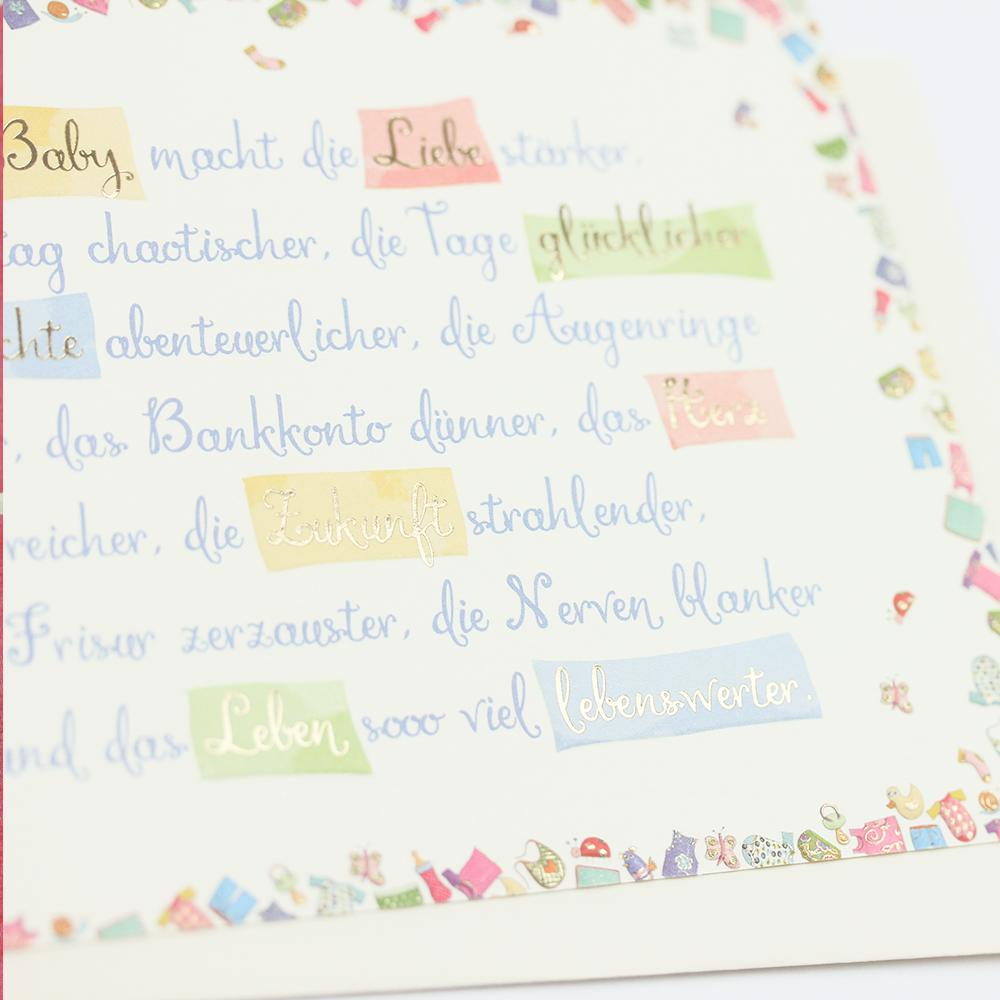 Baby macht die Liebe stärker.
tag chaotischer, die Tage glücklicher
chte abenteuerlicher, die Augenringe
, das Bankkonto dünner, das Herz
reicher, die Zukunft strahlender,
Frisur zerzauster, die Nerven blanker
und das Leben sooo viel lebenswerter.